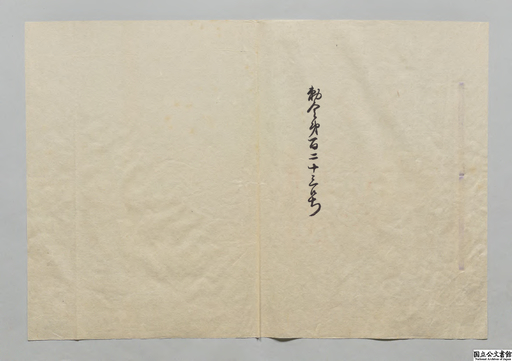 勅令第百二十三号
国立公文書館
National Archives of Japan